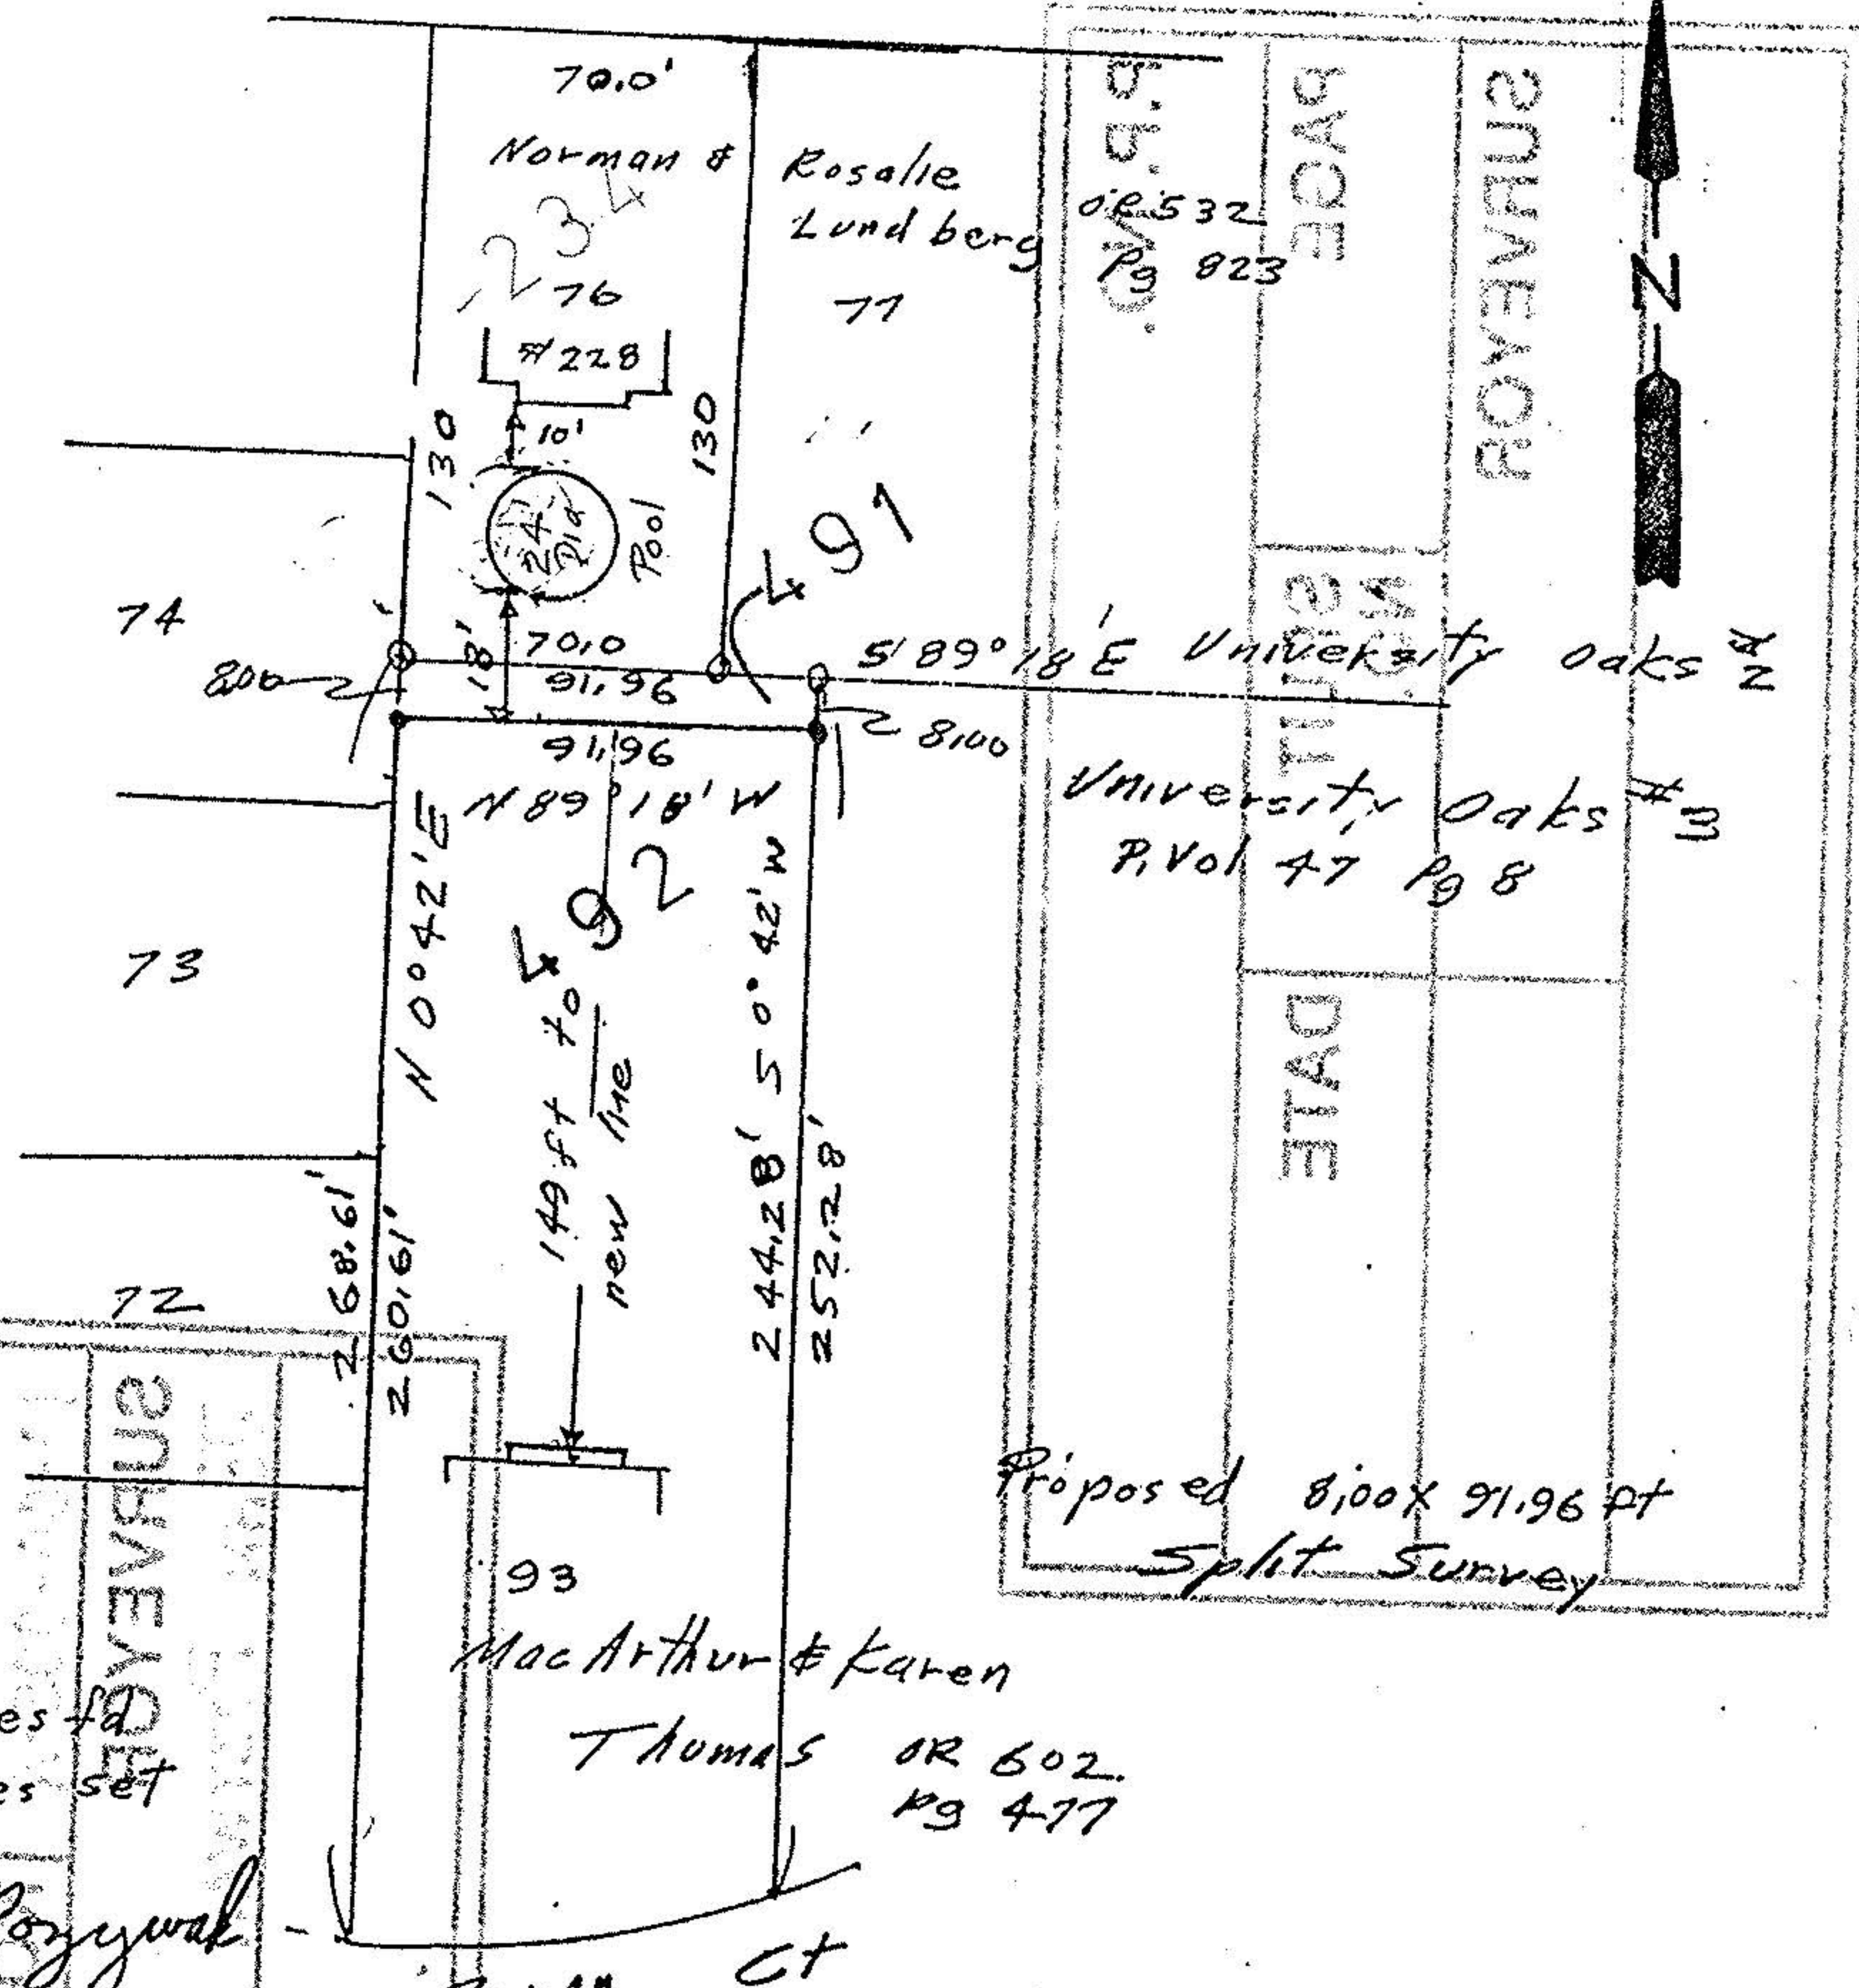 70.0'
Norman & Rosalie
Lundberg
OR 532
Pg 823
234
76
77
#228
10'
130
130
24
Dia
Pool
491
74
18'
70.0
91.96
S 89° 18' E University Oaks #2
8.00
8.00
91.96
N 89° 18' W
University Oaks #3
P. Vol 47 Pg 8
N 0° 42' E
492
S 0° 42' W
73
149 ft to
new line
268.61'
260.61'
244.28'
252.28'
72
Proposed 8.00 x 91.96 ft
Split Survey
93
MacArthur & Karen
Thomas
OR 602
Pg 477
es fd
es set
Ct
N
SURVEYOR
PAGE
SPLIT
NO.
DATE
SURVEYOR